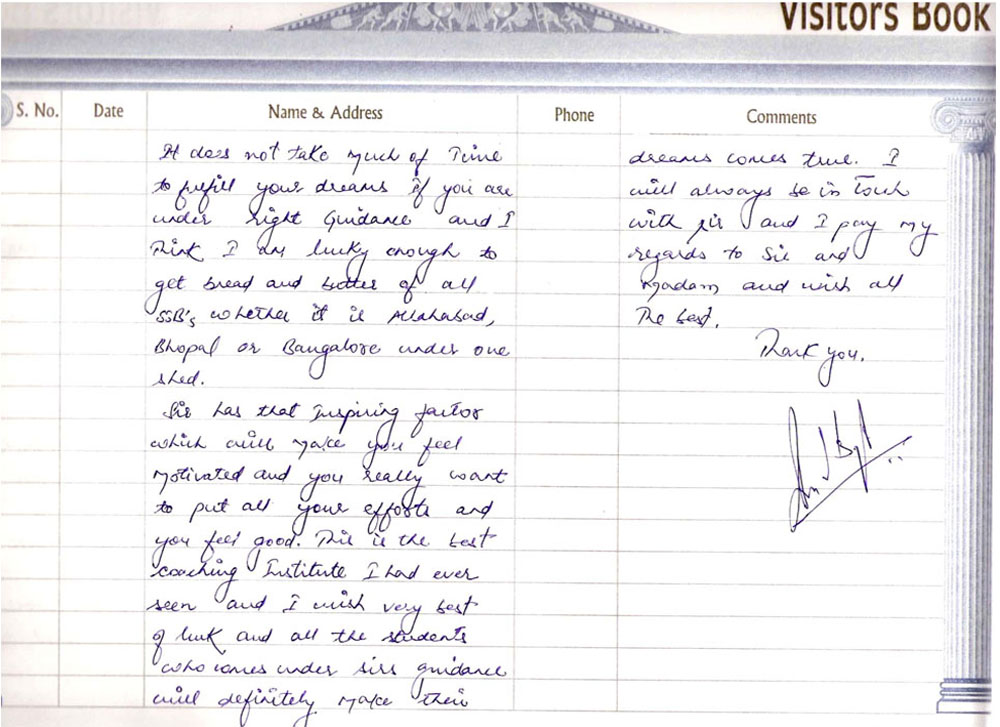 VISITORS BOOK
S. No. Date Name & Address Phone Comments
It does not take much of Time
to fulfill your dreams if you are
under right Guidance and I
Think I am lucky enough to
get bread and butter of all
SSB's whether it is Allahabad,
Bhopal or Bangalore under one
shed.
Sir has that Inspiring factor
which will make you feel
motivated and you really want
to put all your efforts and
you feel good. This is the best
coaching Institute I had ever
seen and I wish very best
of luck and all the students
who comes under sirs guidance
will definitely make their
dreams comes true. I
will always be in Touch
with sir and I pay my
regards to Sir and
Madam and wish all
The best.
Thank you.